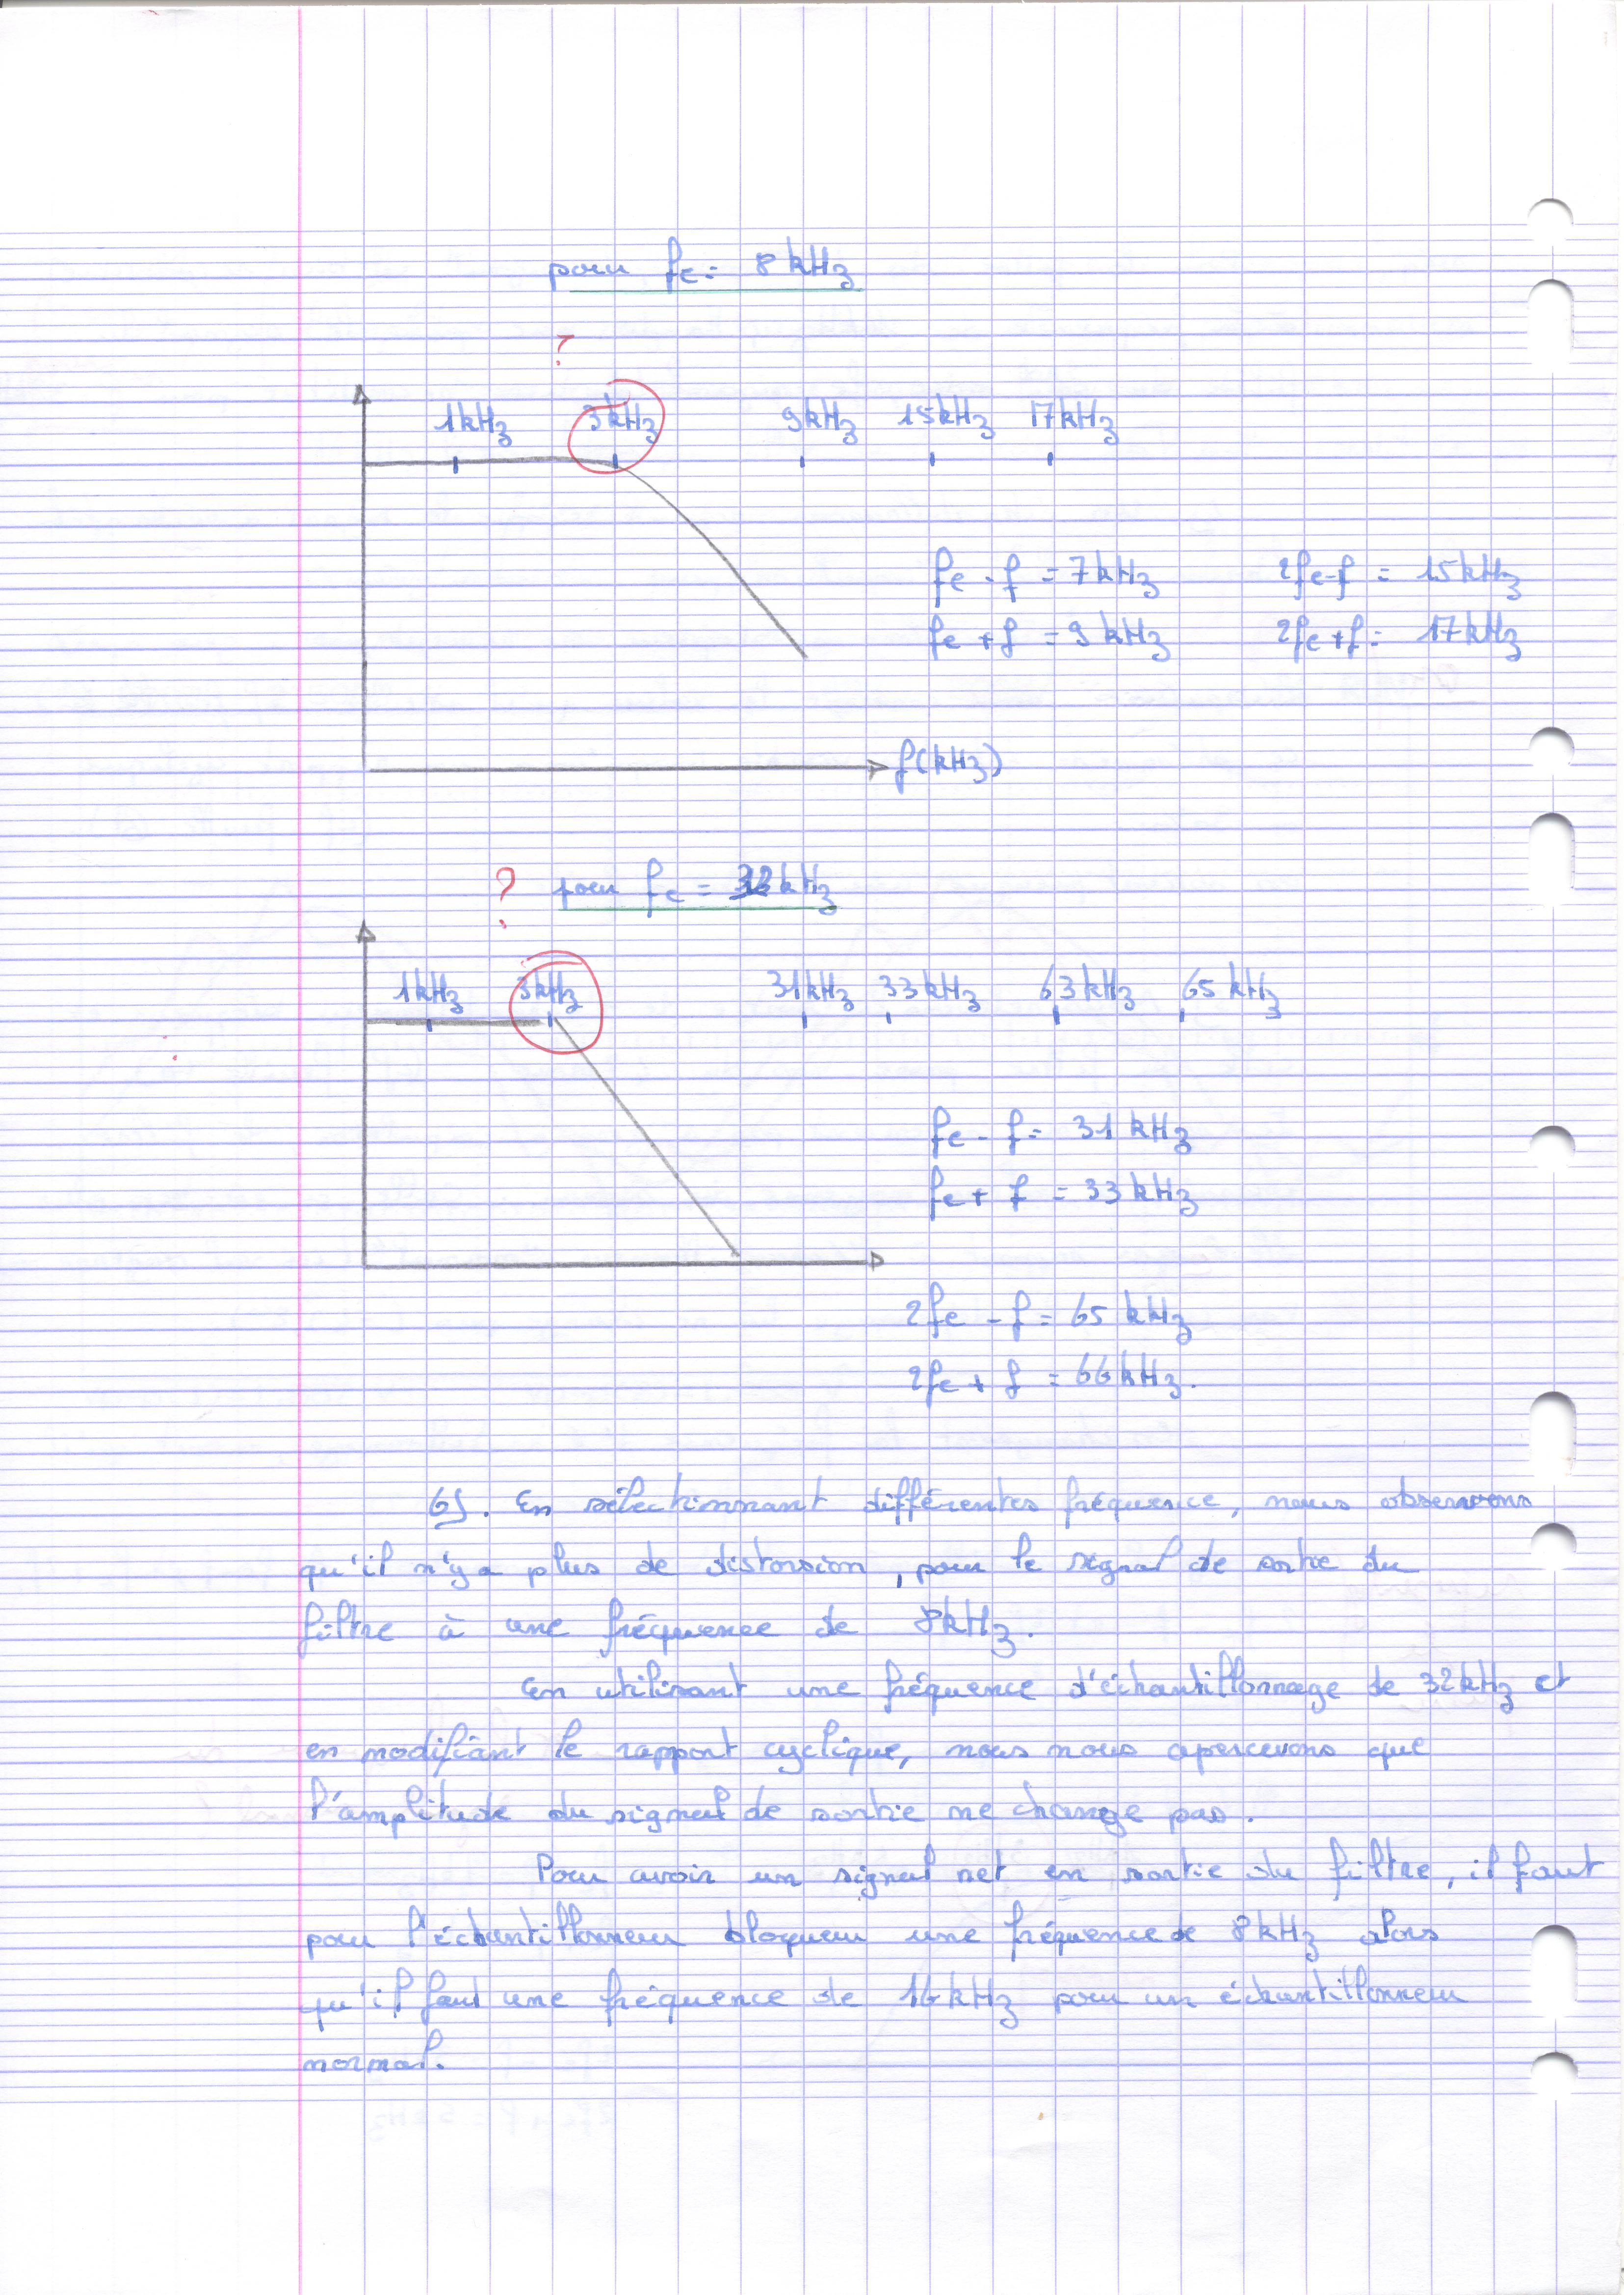 pour fe = 8 kHz
?
1kHz 3kHz 9kHz 15kHz 17kHz
fe - f = 7kHz 2fe-f = 15kHz
fe + f = 9 kHz 2fe+f = 17kHz
f(kHz)
? pour fe = 32kHz
1kHz 3kHz 31kHz 33kHz 63kHz 65kHz
fe - f = 31 kHz
fe + f = 33 kHz
2fe - f = 65 kHz
2fe + f = 66kHz.
6). En sélectionnant différentes fréquence, nous observons
qu'il n'y a plus de distorsion, pour le signal de sortie du
filtre à une fréquence de 8kHz.
En utilisant une fréquence d'échantillonnage de 32kHz et
en modifiant le rapport cyclique, nous nous apercevons que
l'amplitude du signal de sortie ne change pas.
Pour avoir un signal net en sortie du filtre, il faut
pour l'échantillonneur bloqueur une fréquence de 8kHz alors
qu'il faut une fréquence de 16kHz pour un échantillonneur
normal.